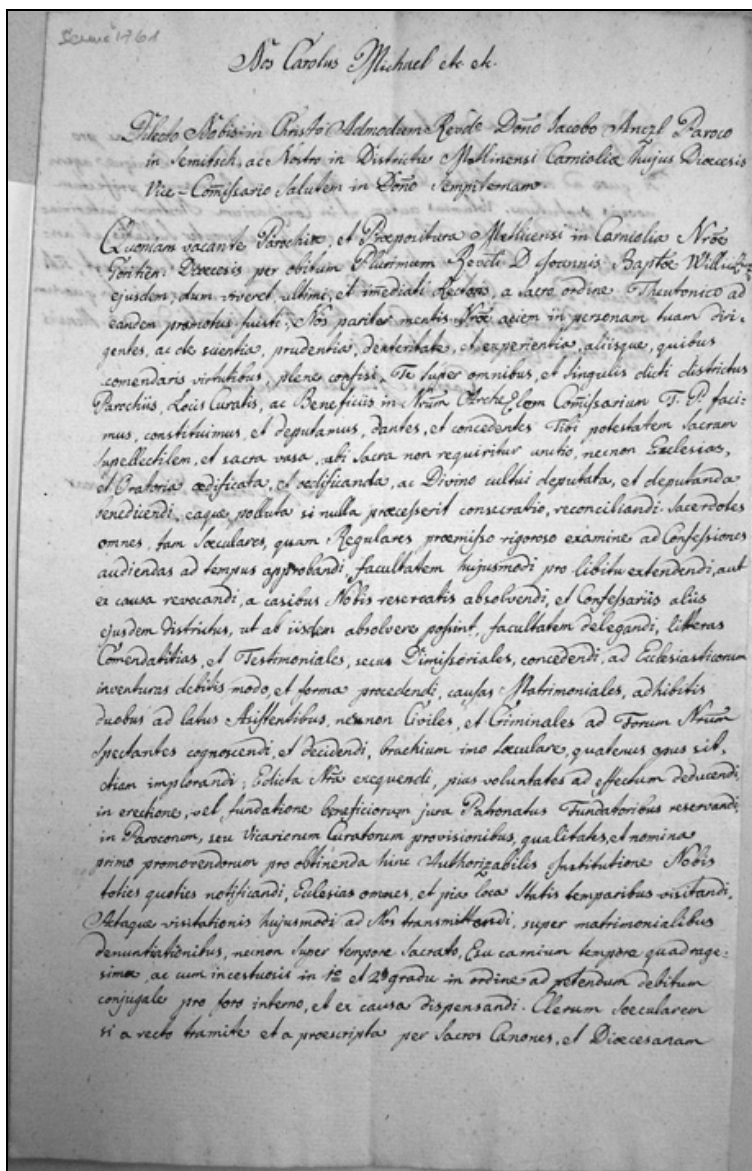 1761
Nos Carolus Michael etc etc.
Dilecto Nobis in Christo Admodum Revdo Dōno Jacobo Anczl Paroco
in Semitsch, ac Nostro in Districtu Metlinensi Carnioliæ hujus Diœcesis
Vice-Com̄issario Salutem in Dōno Sempiternam
Quoniam vacante Parochia, et Præpositura Metlicensi in Carniolia Nrōe
Goritien: Diœcesis per obitum Plurimum Revdi D Joannis Baptæ
ejusdem, dum viveret, ultimi, et im̄ediati Rectoris, a sacro ordine Theutonico ad
eandem promotus fuisti; Nos pariter mentis Nrōe aciem in personam tuam diri-
gentes, ac de scientia, prudentia, dexteritate, et experientia, aliisque, quibus
com̄endaris virtutibus, plene confisi, Te super omnibus, et singulis dicti districtus
Parochiis, Locis Curatis, ac Beneficiis in Nrūm Com̄issarium T. P. faci-
mus, constituimus, et deputamus, dantes, et concedentes Tibi potestatem Sacram
supellectilem, et sacra vasa, ubi sacra non requiritur unctio, necnon Ecclesias,
et Oratoria ædificata, et ædificanda, ac Divino cultui deputata, et deputanda
benedicendi, eaque polluta si nulla præcesserit consecratio, reconciliandi. Sacerdotes
omnes, tam Sœculares, quam Regulares prœmisso rigoroso examine ad Confessiones
audiendas ad tempus approbandi, facultatem hujusmodi pro libitu extendendi, aut
ex causa revocandi, a casibus Nobis reservatis absolvendi, et Confessariis aliis
ejusdem districtus, ut ab iisdem absolvere possint, facultatem delegandi, litteras
Com̄endatitias, et Testimoniales, secus Dimissoriales, concedendi, ad Ecclesiasticorum
inventuras debitis modo, et forma procedendi, causas Matrimoniales, adhibitis
duobus ad latus Assistentibus, necnon Civiles, et Criminales ad Forum Nrūm
spectantes cognoscendi, et decidendi, brachium imo sœculare, quatenus opus sit,
etiam implorandi; Edicta Nrā exequendi, pias voluntates ad effectum deducendi,
in erectione, vel fundatione beneficiorum jura Patronatus Fundatoribus reservandi,
in Parocorum, seu Vicariorum Curatorum provisionibus, qualitates, et nomina
primo promovendorum pro obtinenda hinc Authorizabilis Institutione Nobis
toties quoties notificandi, Ecclesias omnes, et pia Loca statis temporibus visitandi,
Actaque visitationis hujusmodi ad Nos transmittendi, super matrimonialibus
denuntiationibus, necnon super tempore Sacrato, Esu carnium tempore quadrage-
simæ, ac cum incestuosis in 1o et 2o gradu in ordine ad petendum debitum
conjugale pro foro interno, et ex causa dispensandi. Clerum sœcularem
si a recto tramite et a prœscripta per Sacros Canones, et Diœcesanam